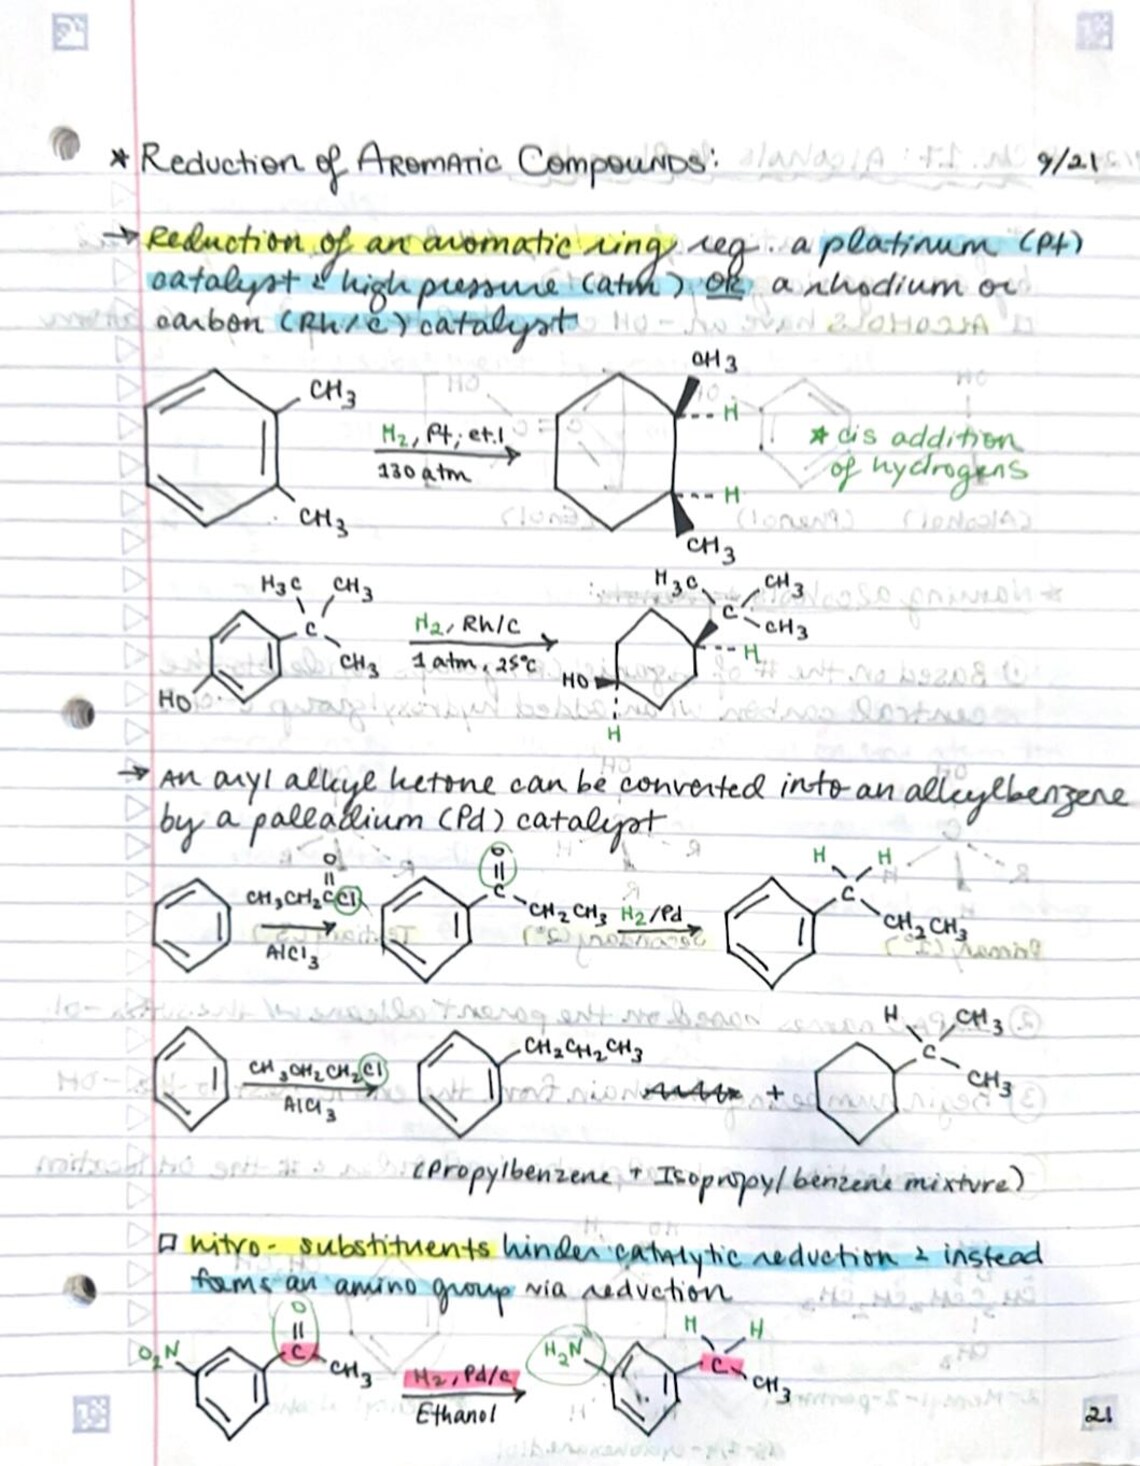 * Reduction of Aromatic Compounds: 9/21
→ Reduction of an aromatic ring req. a platinum (Pt)
catalyst & high pressure (atm) OR a rhodium or
carbon (Rh/C) catalyst
CH3
CH3
H2, Pt; et.l
130 atm
CH3
H
H
CH3
* cis addition
of hydrogens
H3C CH3
C
CH3
HO
H2, Rh/C
1 atm, 25°C
H3C CH3
C
CH3
H
HO
H
→ An aryl alkyl ketone can be converted into an alkylbenzene
by a palladium (Pd) catalyst
O
CH3CH2CCl
AlCl3
O
C
CH2CH3
H2/Pd
H H
C
CH2CH3
CH3CH2CH2Cl
AlCl3
CH2CH2CH3
+
H CH3
C
CH3
(Propylbenzene + Isopropylbenzene mixture)
□ nitro- substituents hinder catalytic reduction & instead
forms an amino group via reduction
O
O2N
C
CH3
H2, Pd/C
Ethanol
H2N
H H
C
CH3
21